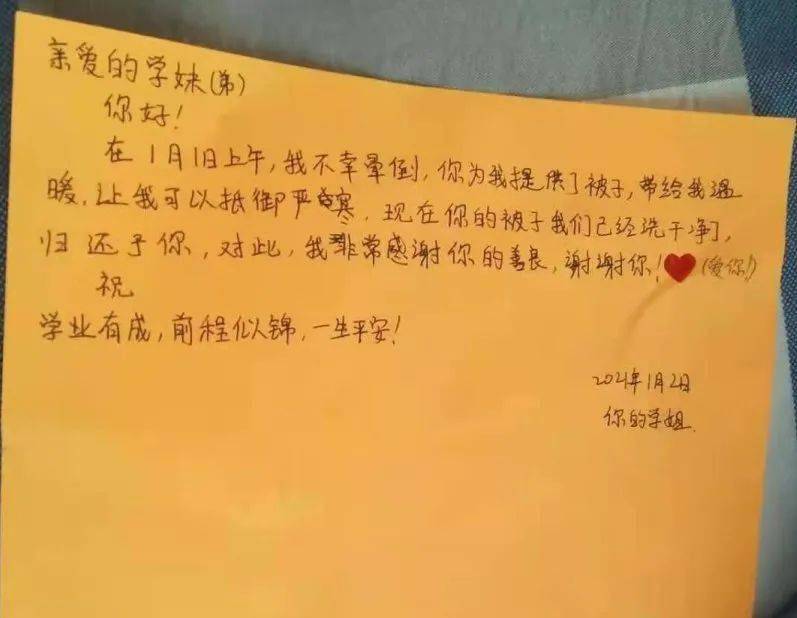 亲爱的学妹(弟)
你好!
在1月1日上午,我不幸晕倒,你为我提供了被子,带给我温
暖,让我可以抵御严寒,现在你的被子我们已经洗干净了,
归还予你,对此,我非常感谢你的善良,谢谢你!❤(爱你!)
祝
学业有成,前程似锦,一生平安!
2021年1月2日
你的学姐.